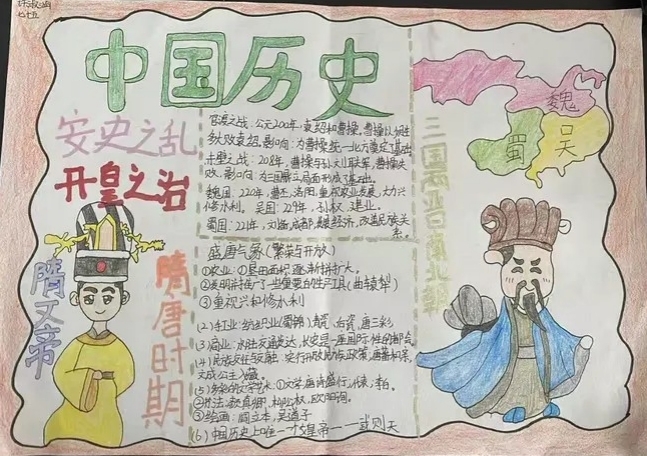 七十五
中国历史
安史之乱
开皇之治
隋文帝
隋唐时期
官渡之战：公元200年，袁绍和曹操，曹操以
多，大败袁绍，影响：为曹操统一北方奠定基础。
赤壁之战：208年，曹操与孙刘联军，曹操失
败，影响：为三国鼎立局面形成
魏国：220年，曹丕，洛阳，重视农业发展，大力兴
修水利。吴国：229年，孙权，建业。
蜀国：221年，刘备，成都，经济，改善民族关
系。
盛唐气象（繁荣与开放）
①农业：①垦田面积逐渐扩大。
②发明并推广了一些重要的生产工具（曲辕犁）
③重视兴和修水利
(2)手工业：纺织业（蜀锦），青瓷，白瓷，唐三彩
(3)商业：水陆交通发达，长安是一座国际性的都会。
(4)民族交往与交融：实行开放民族政策，唐蕃和亲，
文成公主入藏。
(5)多彩的文学艺术：①文学：唐诗盛行，代表：李白。
②书法：颜真卿，柳公权，欧阳询。
③绘画：阎立本，吴道子
(6)中国历史上唯一个女皇帝——武则天
三国两晋南北朝
魏
蜀
吴